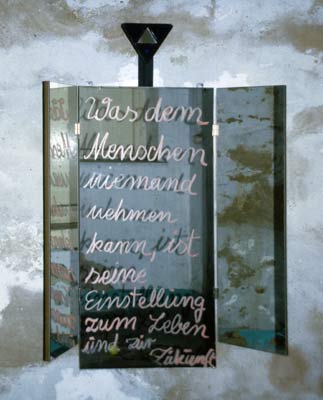 Was dem
Menschen
niemand
nehmen
kann, ist
seine
Einstellung
zum Leben
und zur
Zukunft